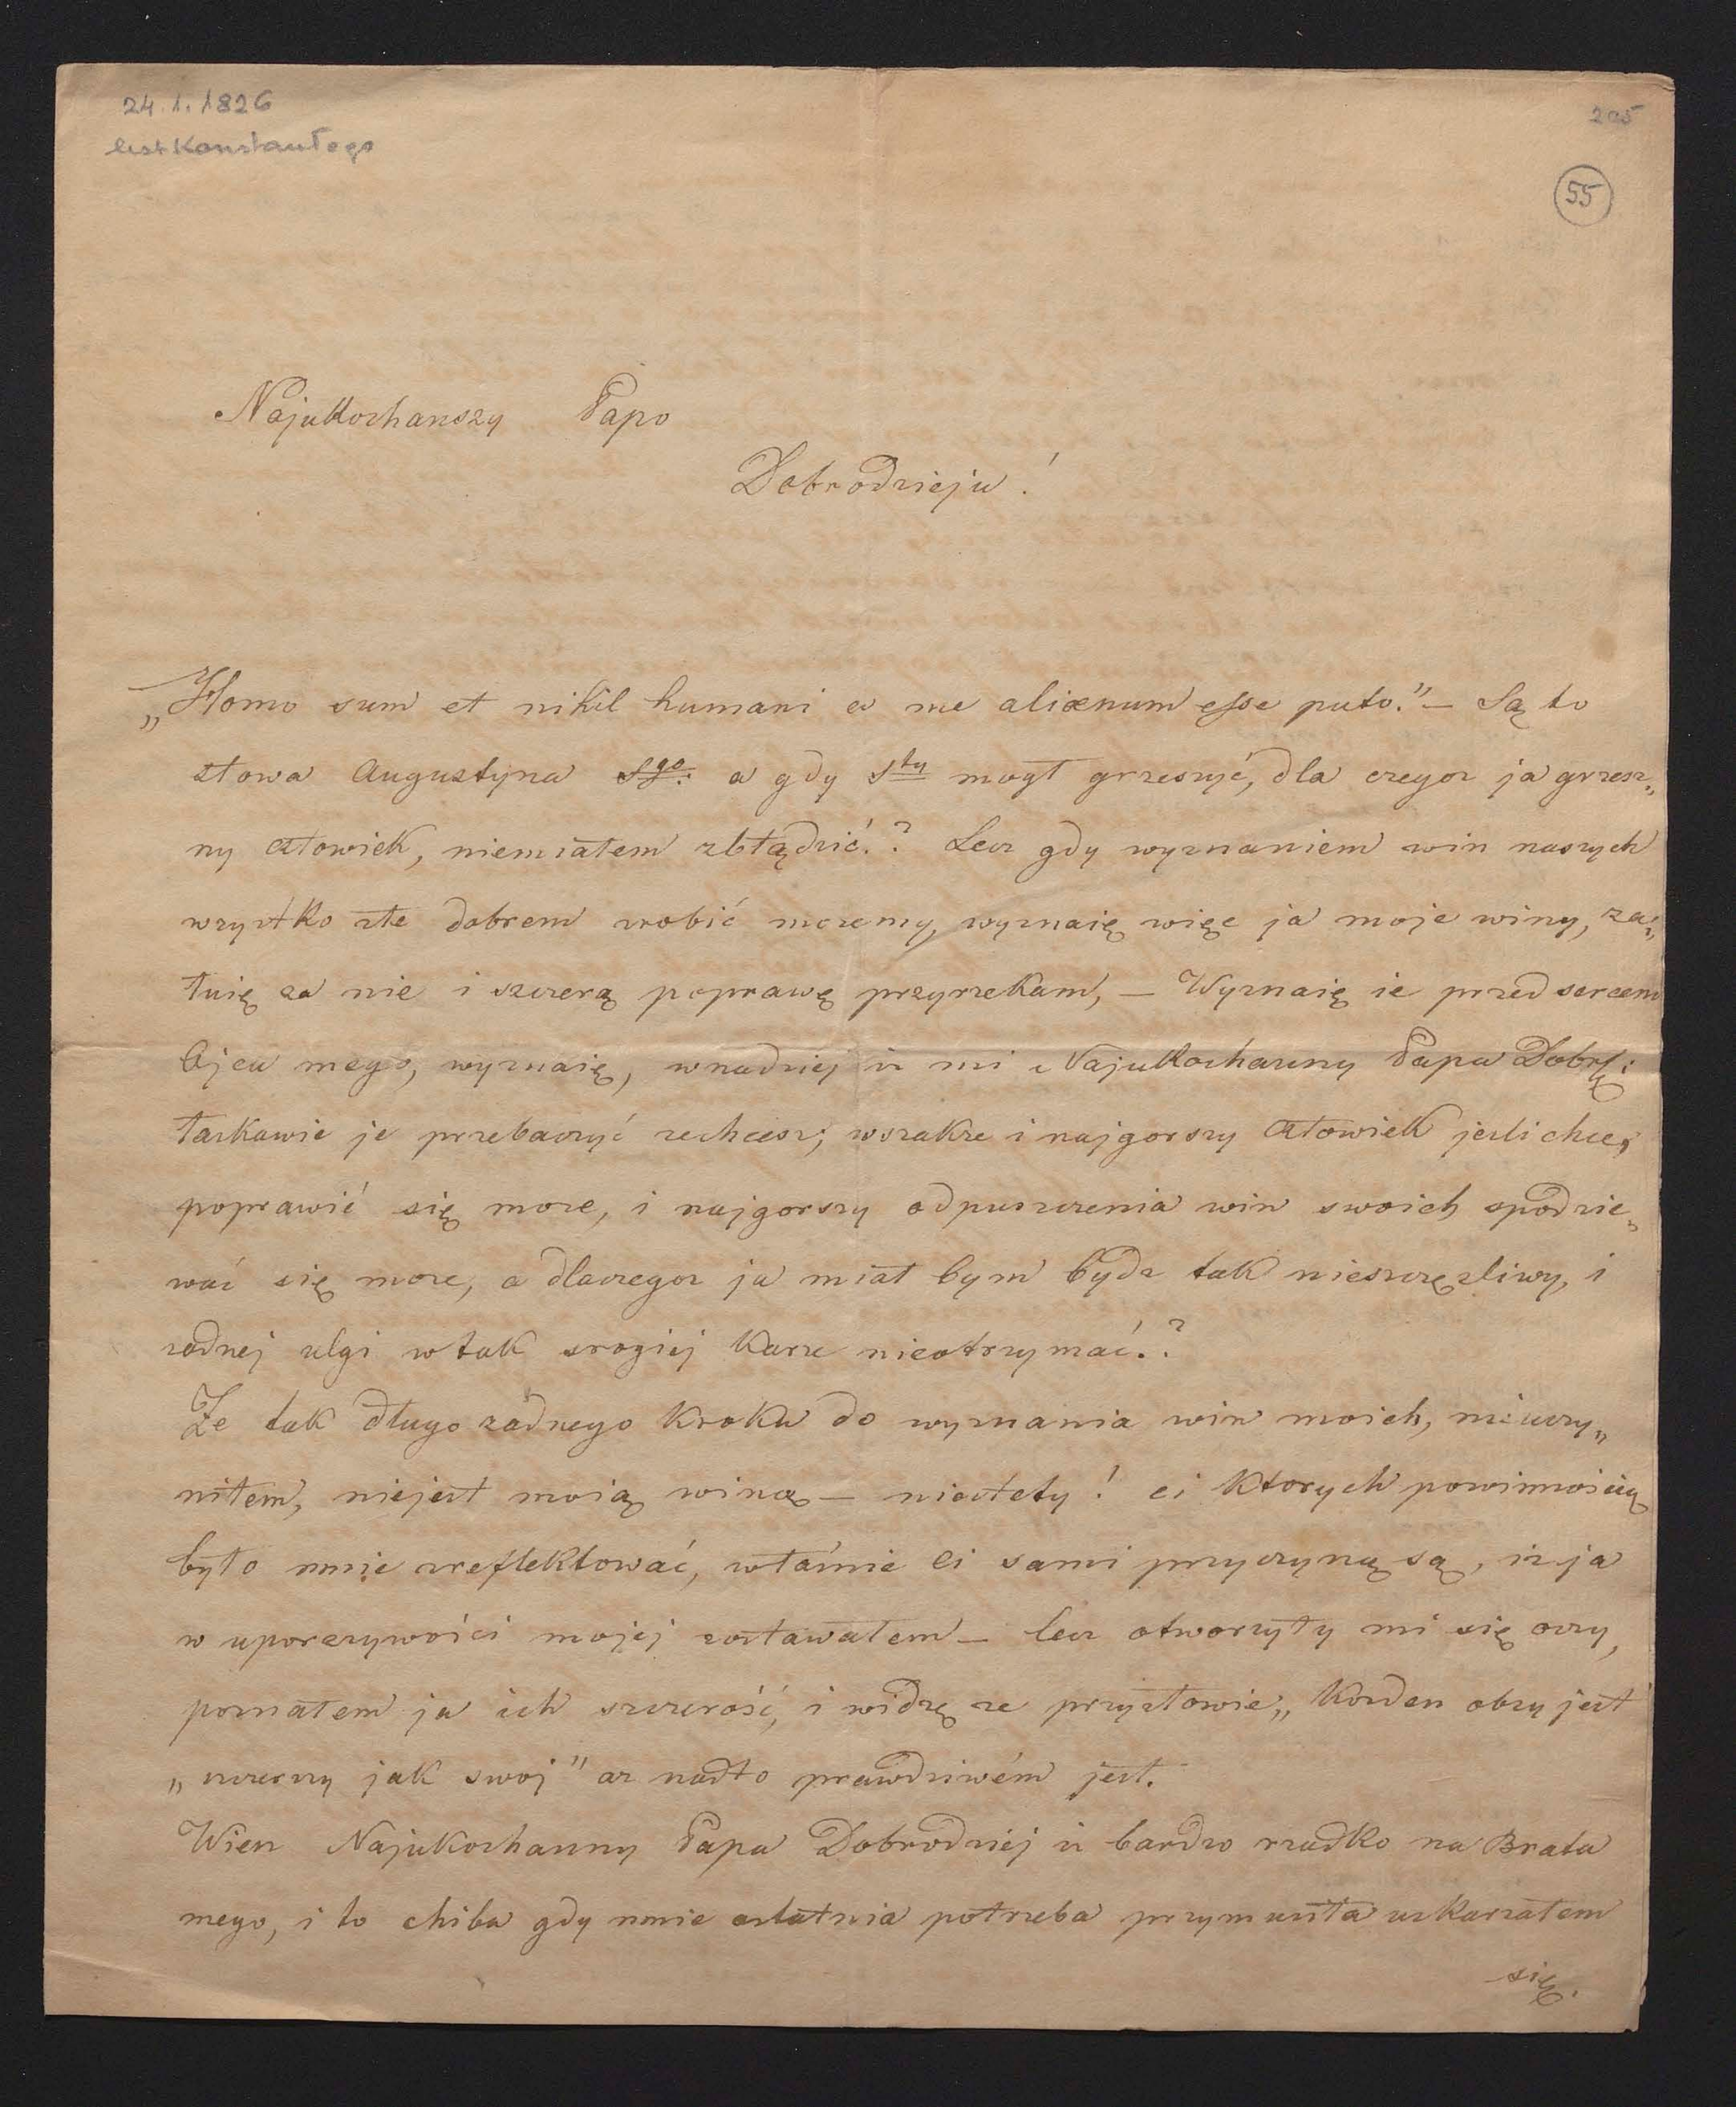 24.1.1826
205
list Konstantego
55
Najukochanszy Papo
Dobrodzieju!
„Homo sum et nihil humani a me alienum esse puto." — Są to
słowa Augustyna Sgo: a gdy Sty mogł grzeszyć, dla czegoz ja grzesz„
ny człowiek, niemiałem zbłądzić.? Lecz gdy wyznaniem win naszych
wszystko złe dobrem zrobić mozemy, wyznaię więc ja moje winy, za„
łuię za nie i szczerą poprawę przyrzekam, — Wyznaię ie przed sercem
Ojca mego, wyznaię, wnadziej iz mi Najukochanny Papa Dobrdz:
łaskawie je przebaczyć zechcesz; wszakze i najgorszy człowiek jesli chce,
poprawić się moze, i najgorszy odpuszczenia win swoich spodzie„
wać się moze, a dlaczegoz ja miał bym bydz tak nieszczęzliwy, i
zadnej ulgi w tak srogiej karze nieotrzymać.?
Ze tak długo zadnego kroku do wyznania win moich, nieuczy„
niłem, niejest moią winą — niestety! ci ktorych powinnoscią
było mnie zreflektować, właśnie ci sami przyczyną są, iz ja
w uporczywości mojej zostawałem — lecz otworzyły mi się oczy,
poznałem ja ich szczerość, i widzę ze przysłowie „ kozden obcy jest
„ uczczny jak swoj" az nadto prawdziwém jest.
Wiesz Najukochanny Papa Dobrodziej iz bardzo rzadko na Brata
mego, i to chiba gdy mnie ostatnia potrzeba przymusiła uskarzałem
się.